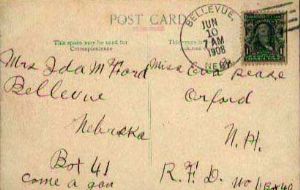 POST CARD
This space may be used for
Correspondence
This
BELLEVUE,
JUN
10
7 AM
1908
NEBR
Mrs Ida M Ford
Bellevue
Nebraska
Box 41
come a gan
Miss Eva Pease
Orford
N. H.
R. F. D No 1 Box 40